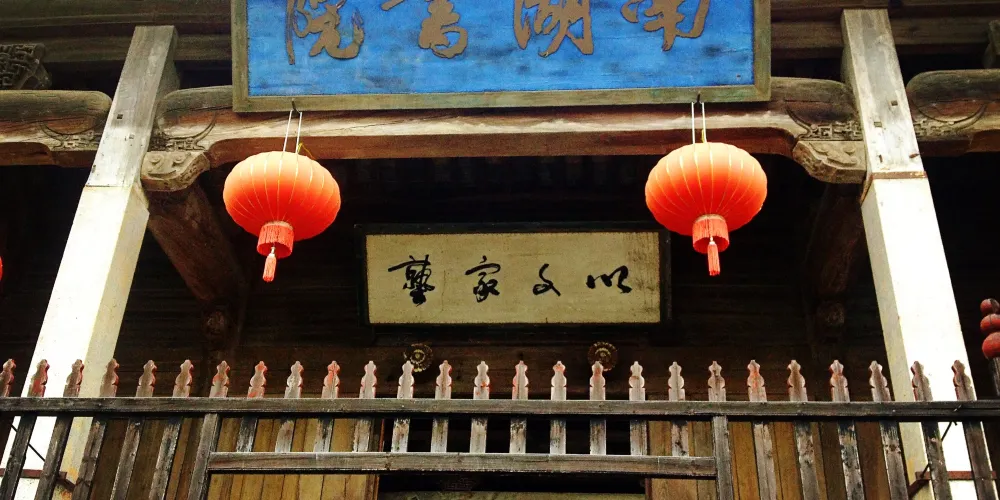 南湖書院
以文家塾